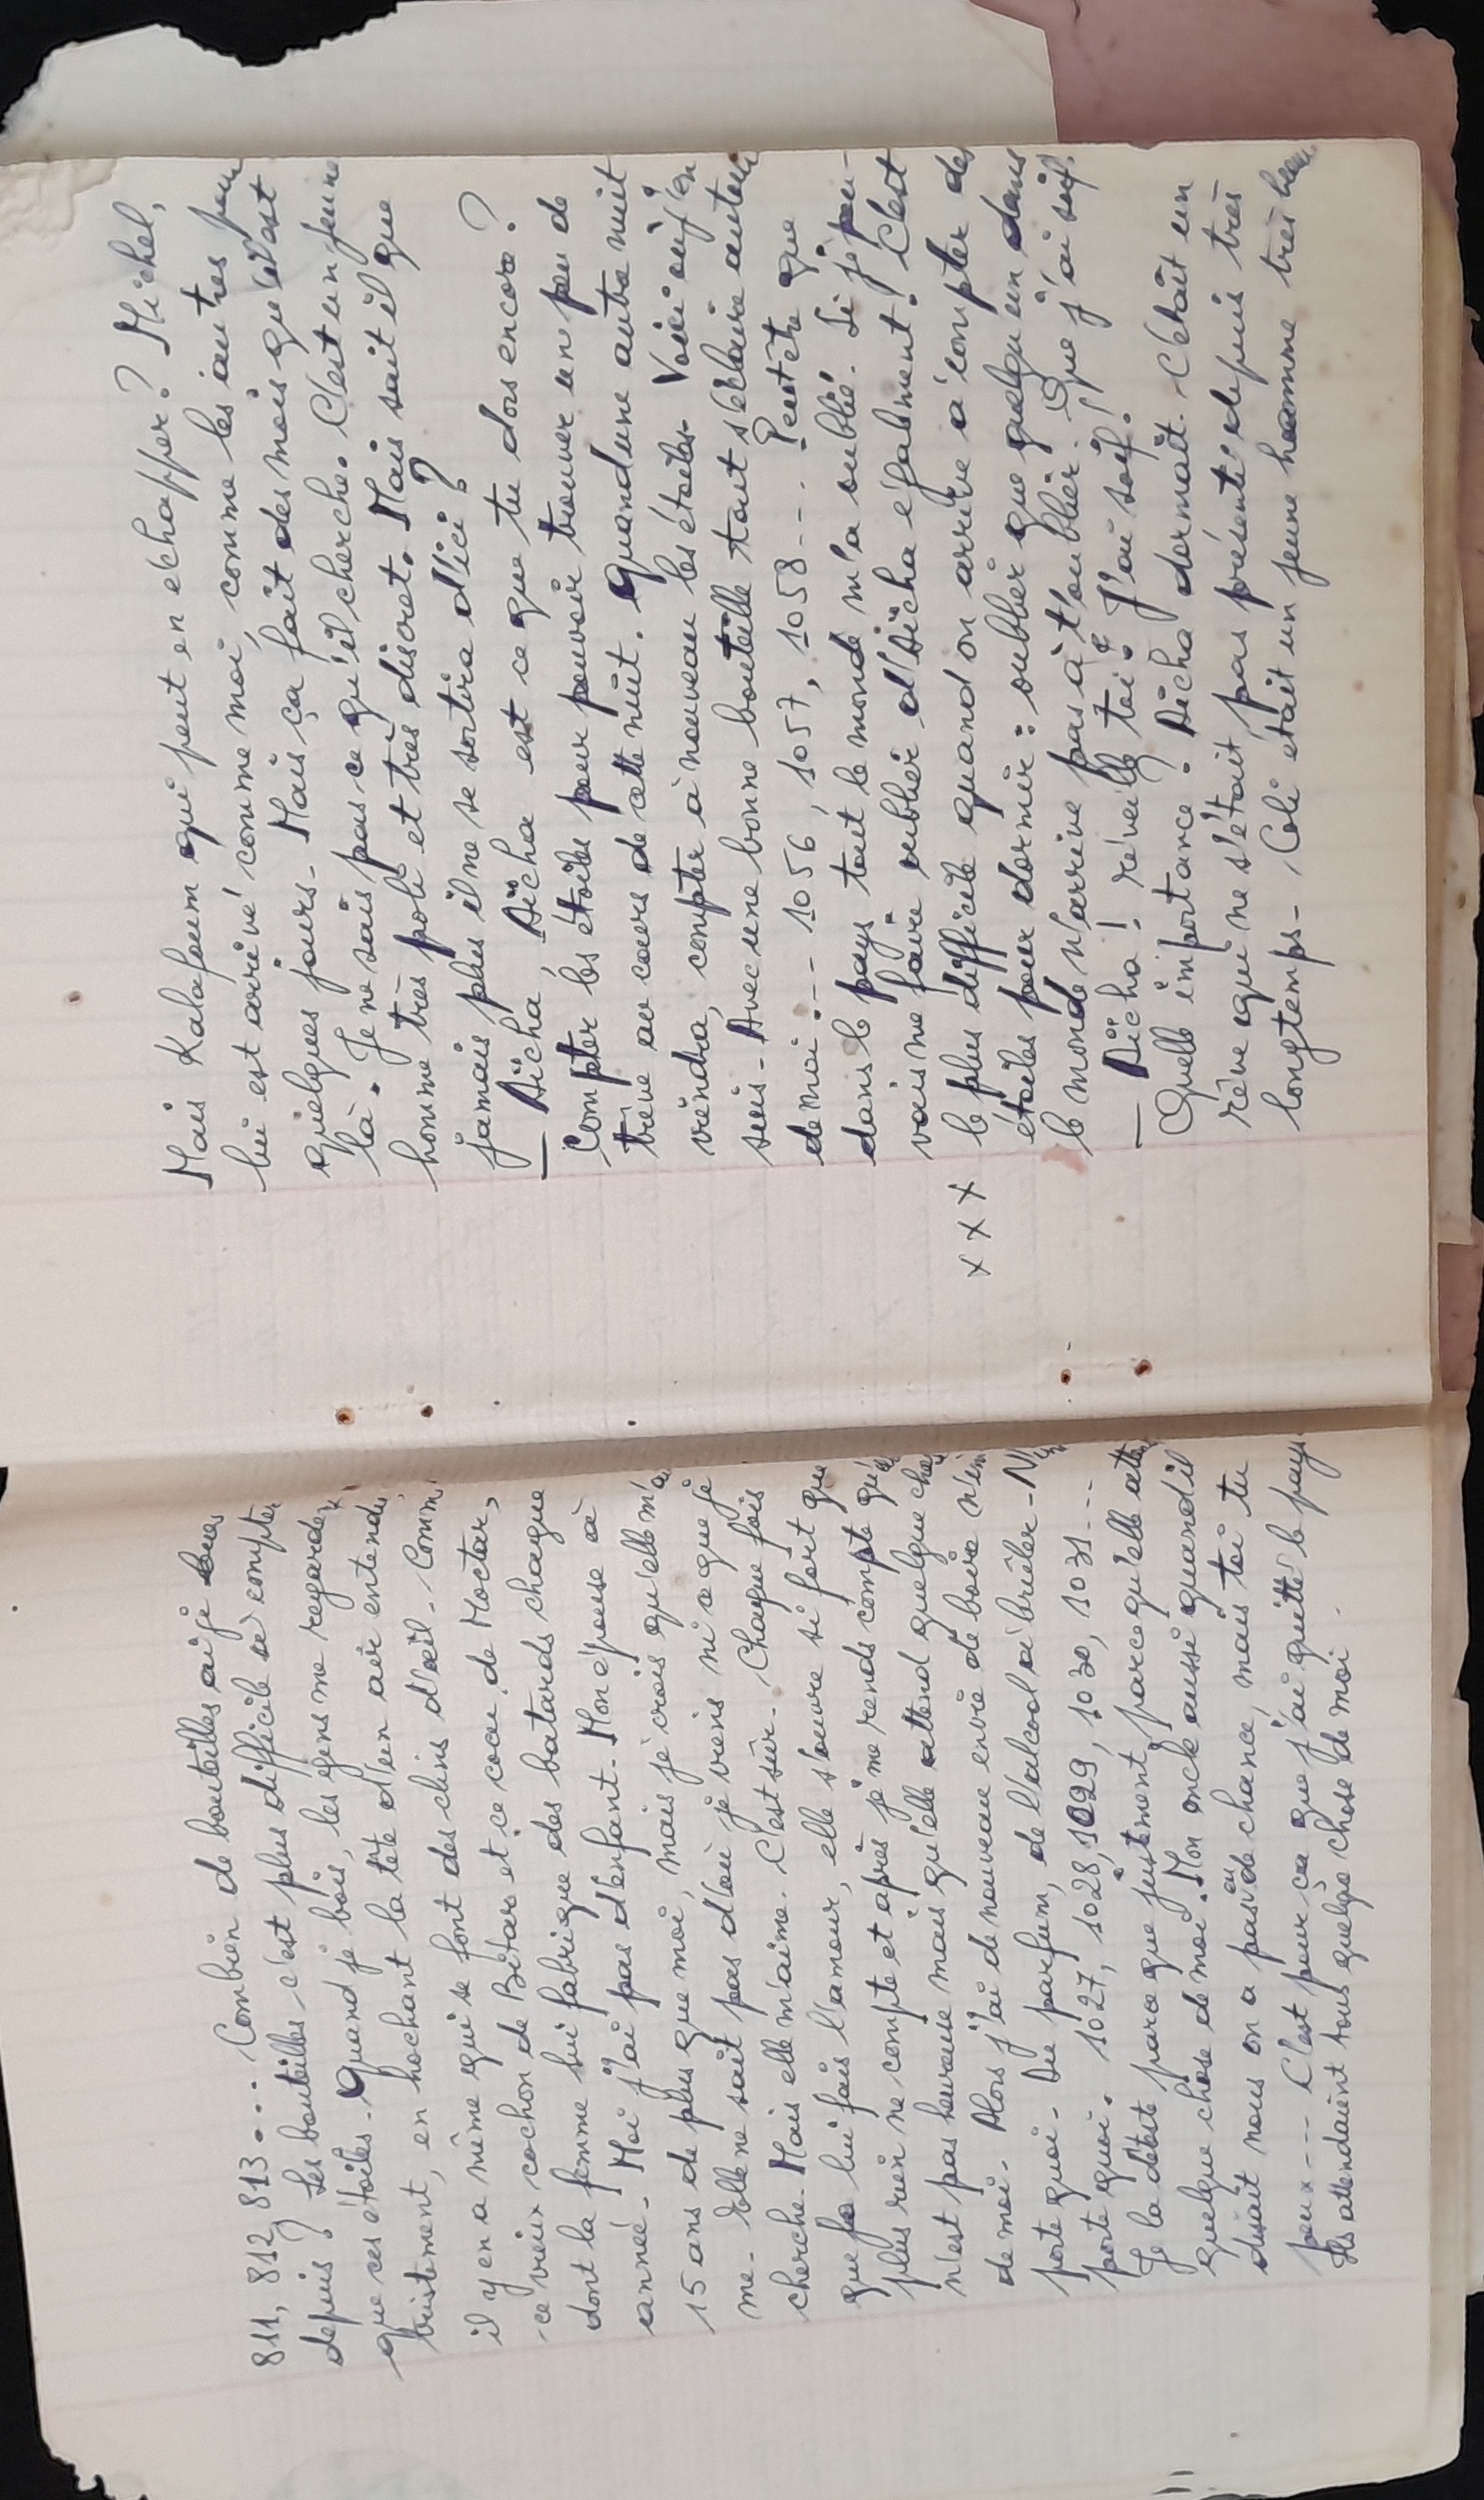 811, 812, 813.... Combien de bouteilles ai je bues
depuis? Les bouteilles c'est plus difficile à compter
que ces étoiles. Quand je bois, les gens me regardent
tristement, en hochant la tête d'un air entendu,
il y en a même qui se font des clins d'œil. Comm
ce vieux cochon de Bétar et ce cocu de Moctar,
dont la femme lui fabrique des batards chaque
année. Moi j'ai pas d'enfant. Mon épouse à
15 ans de plus que moi, mais je crois qu'elle m'ai
me. Elle ne sait pas d'où je viens ni ce que je
cherche. Mais elle m'aime. C'est sûr. Chaque fois
que je lui fais l'amour, elle s'ouvre si fort que
plus rien ne compte et après je me rends compte qu'elle
n'est pas heureuse mais qu'elle attend quelque chose
de moi. Alors j'ai de nouveau envie de boire n'im
porte quoi. Du parfum, de l'alcool à brûler. N'im
porte quoi. 1027, 1028, 1029, 1030, 1031...
Je la déteste parce que justement, parce qu'elle attend
quelque chose de moi. Mon oncle aussi quand il
disait nous on a pas eu de chance, mais toi tu
peux.... C'est pour ça que j'ai quitté le pays
Ils attendaient tous quelque chose de moi.
Mais Kalafoum qui peut en échapper? Michel,
lui est arrivé comme moi, comme les autres pour
quelques jours. Mais ça fait des mois qu'il est
là. Je ne sais pas ce qu'il cherche. C'est un jeune
homme très poli et très discret. Mais sait il que
jamais plus il ne se sortira d'ici?
— Aïcha, Aïcha est ce que tu dors encore?
Compter les étoiles pour pouvoir trouver un peu de
trève au cours de cette nuit. Quand une autre nuit
viendra, compter à nouveau les étoiles. Voici où j'en
suis. Avec une bonne bouteille tout s'éclaire autour
de moi.... 1056, 1057, 1058... Peut être que
dans le pays tout le monde m'a oublié. Si je pou-
vais me faire oublier d'Aïcha également! C'est
x x x le plus difficile quand on arrive à compter des
étoiles pour dormir: oublier que quelqu'un dans
le monde n'arrive pas à t'oublier. Que j'ai soif.
— Aïcha! réveille toi! J'ai soif!
Quelle importance? Aïcha dormait. C'était un
rêve qui ne s'était pas présenté depuis très
longtemps. Coli était un jeune homme très beau